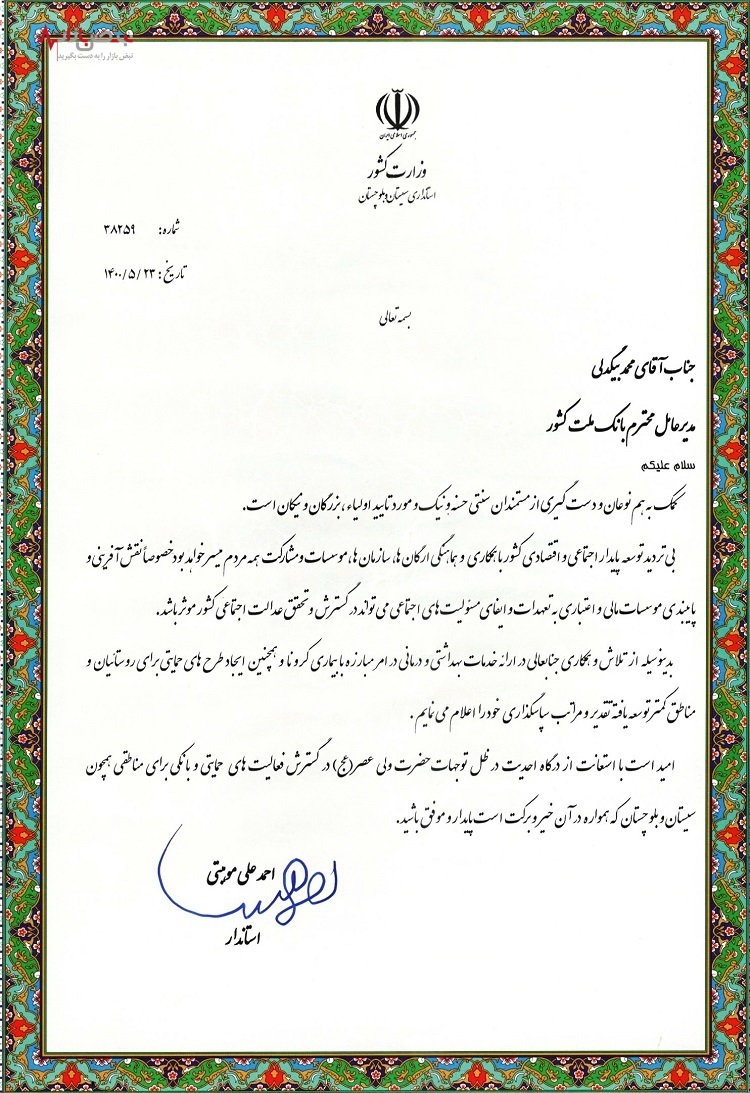 نبض بازار را به دست بگیرید
جمهوری اسلامی ایران
وزارت کشور
استانداری سیستان و بلوچستان
شماره: ۳۸۲۵۹
تاریخ: ۱۴۰۰/۵/۲۳
بسمه تعالی
جناب آقای محمد بیگدلی
مدیرعامل محترم بانک ملت کشور
سلام علیکم
کمک به هم نوعان و دست گیری از مستمندان سنتی حسنه و نیک و مورد تایید اولیاء، بزرگان و نیکان است.
بی تردید توسعه پایدار اجتماعی و اقتصادی کشور با همکاری و هماهنگی ارکان ها، سازمان ها، موسسات و مشارکت همه مردم میسر خواهد بود خصوصاً نقش آفرینی و
پایبندی موسسات مالی و اعتباری به تعهدات و ایفای مسئولیت های اجتماعی می تواند در گسترش و تحقق عدالت اجتماعی کشور موثر باشد.
بدینوسیله از تلاش و همکاری جنابعالی در ارائه خدمات بهداشتی و درمانی در امر مبارزه با بیماری کرونا و همچنین ایجاد طرح های حمایتی برای روستائیان و
مناطق کمتر توسعه یافته تقدیر و مراتب سپاسگذاری خود را اعلام می نمایم.
امید است با استعانت از درگاه احدیت در ظل توجهات حضرت ولی عصر(عج) در گسترش فعالیت های حمایتی و بانکی برای مناطقی همچون
سیستان و بلوچستان که همواره در آن خیر و برکت است پایدار و موفق باشید.
احمد علی موهبتی
استاندار